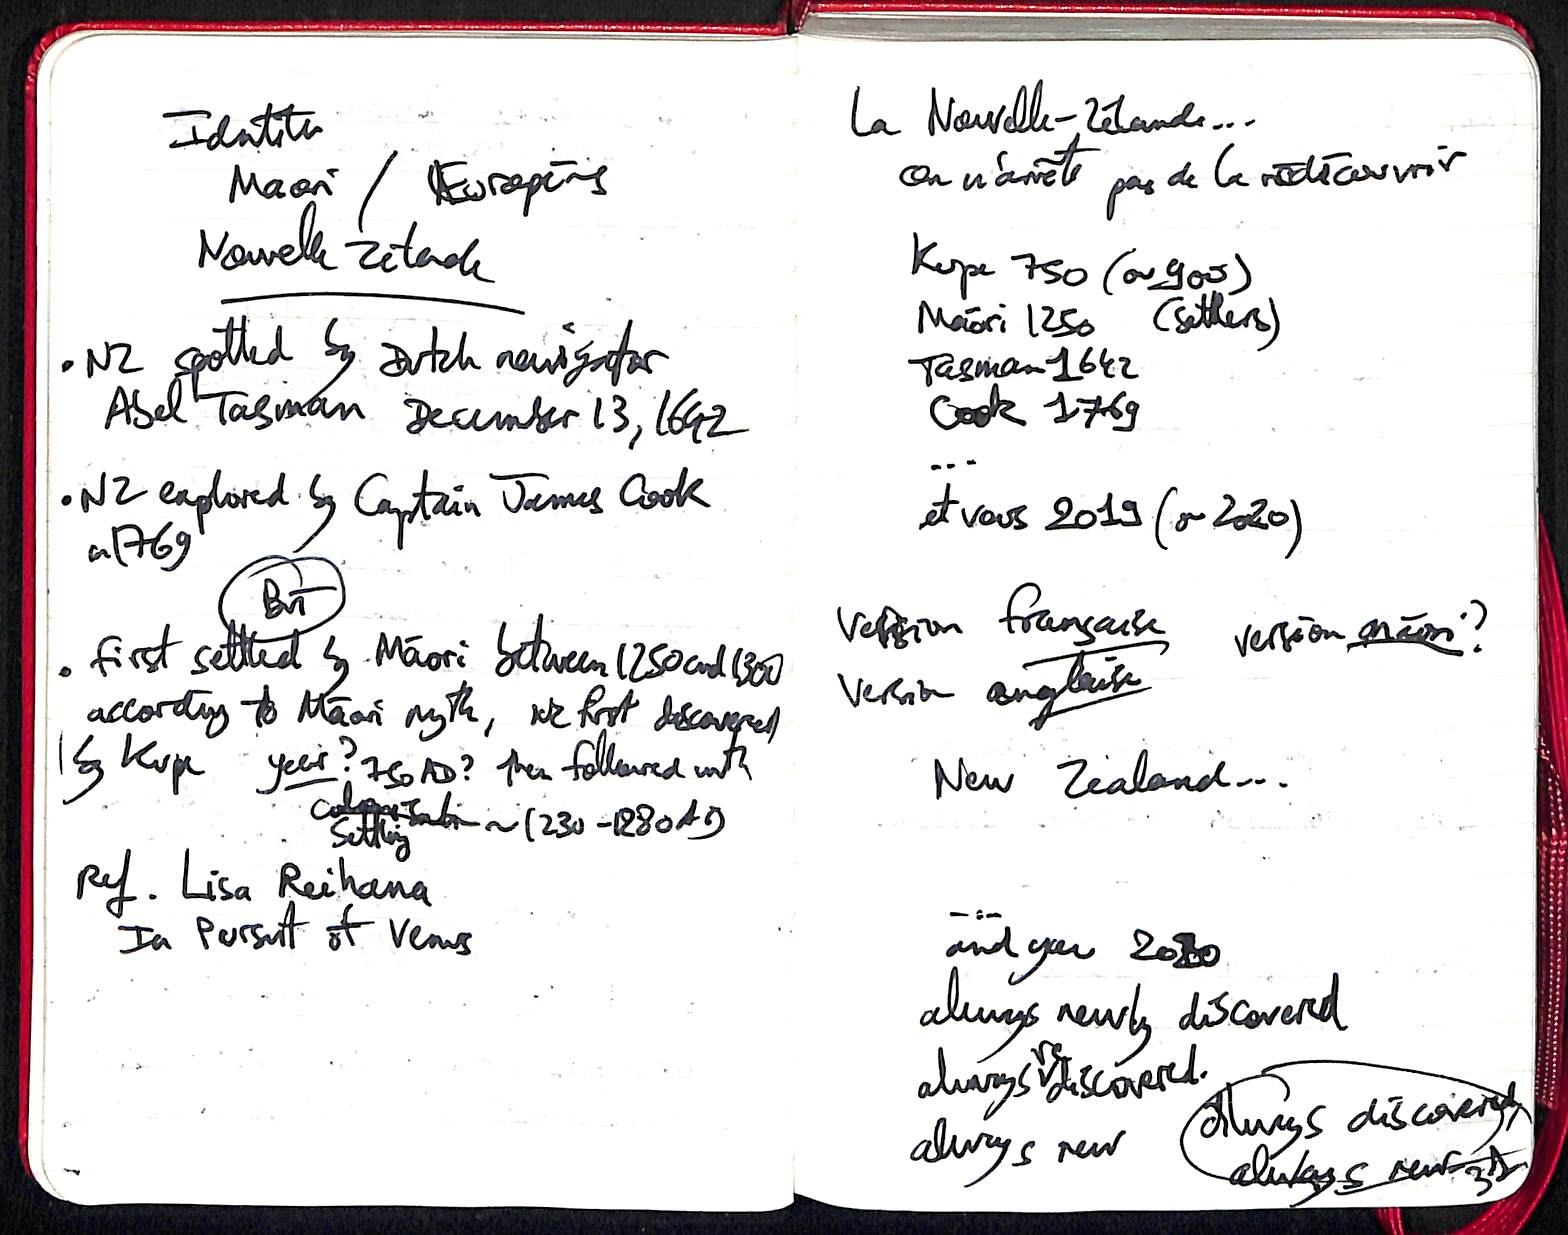 Identité
Maori / Européens
Nouvelle Zélande
• NZ spotted by Dutch navigator
Abel Tasman December 13, 1642
• NZ explored by Captain James Cook
in 1769
But
• first settled by Māori between 1250 and 1300
according to Māori myth, NZ first discovered
by Kupe year? 750 AD? then followed with
colonisation
settling ~ 1230-1280 AD
Ref. Lisa Reihana
In Pursuit of Venus
La Nouvelle-Zélande...
on n'arrête pas de la redécouvrir
Kupe 750 (or 900)
Māori 1250 (settlers)
Tasman 1642
Cook 1769
...
et vous 2019 (or 2020)
version française version māori?
version anglaise
New Zealand...
...
and you 2020
always newly discovered
always re discovered.
always new
Always discovered,
always new